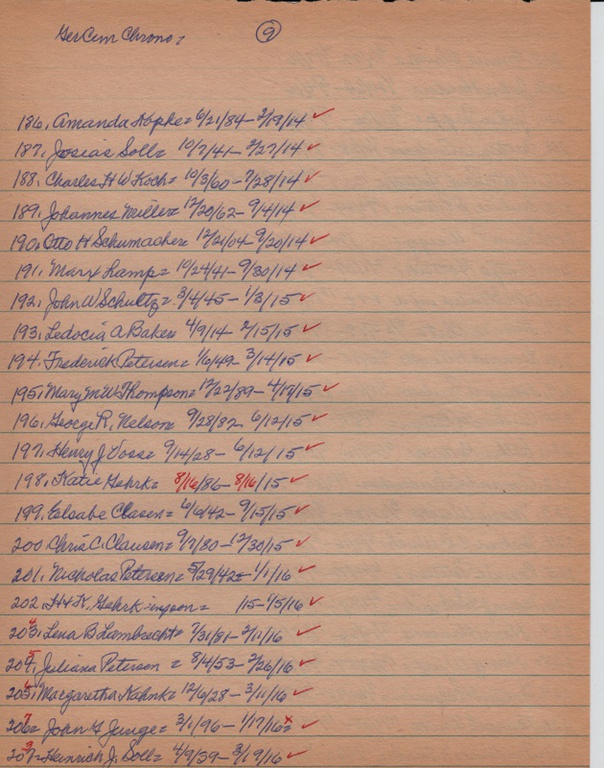 GerCem Chrono: 9
186, Amanda Kopke = 6/21/84 – 2/19/14 ✓
187, Josias Soll = 10/7/41 – 3/27/14 ✓
188, Charles H W Koch = 10/3/60 – 7/28/14 ✓
189, Johannes Miller = 12/20/62 – 9/4/14 ✓
190, Otto H Schumacher = 12/21/04 – 9/20/14 ✓
191, Marx Lamp = 10/24/41 – 9/30/14 ✓
192, John W Schultz = 3/4/45 – 1/8/15 ✓
193, Ledocia A Baker 4/9/14 – 2/15/15 ✓
194, Frederick Petersen = 1/6/49 – 3/14/15 ✓
195, Mary M W Thompson = 12/22/89 – 4/19/15 ✓
196, George R, Nelson = 9/28/82 – 6/12/15 ✓
197, Henry J Voss = 9/14/28 – 6/12/15 ✓
198, Katie Gehrk = 8/16/86 – 8/16/15 ✓
199, Eelsabe Clasen = 6/6/42 – 9/15/15 ✓
200, Chris C. Clausen = 9/7/80 – 12/30/15 ✓
201, Nicholas Petersen = 5/29/42 = 1/1/16 ✓
202, H & K, Gehrk = /15 – 1/5/16 ✓
203, 4 Lena B Lambrecht = 7/31/81 – 2/11/16 ✓
204, 5 Juliana Peterson = 8/4/53 – 2/26/16 ✓
205, 6 Margaretha Kahnk = 12/6/28 – 3/11/16 ✓
206 = 7 John G Junge = 3/1/96 – 1/17/16 = x ✓
207 = Heinrich J, Soll = 4/9/39 – 3/19/16 ✓